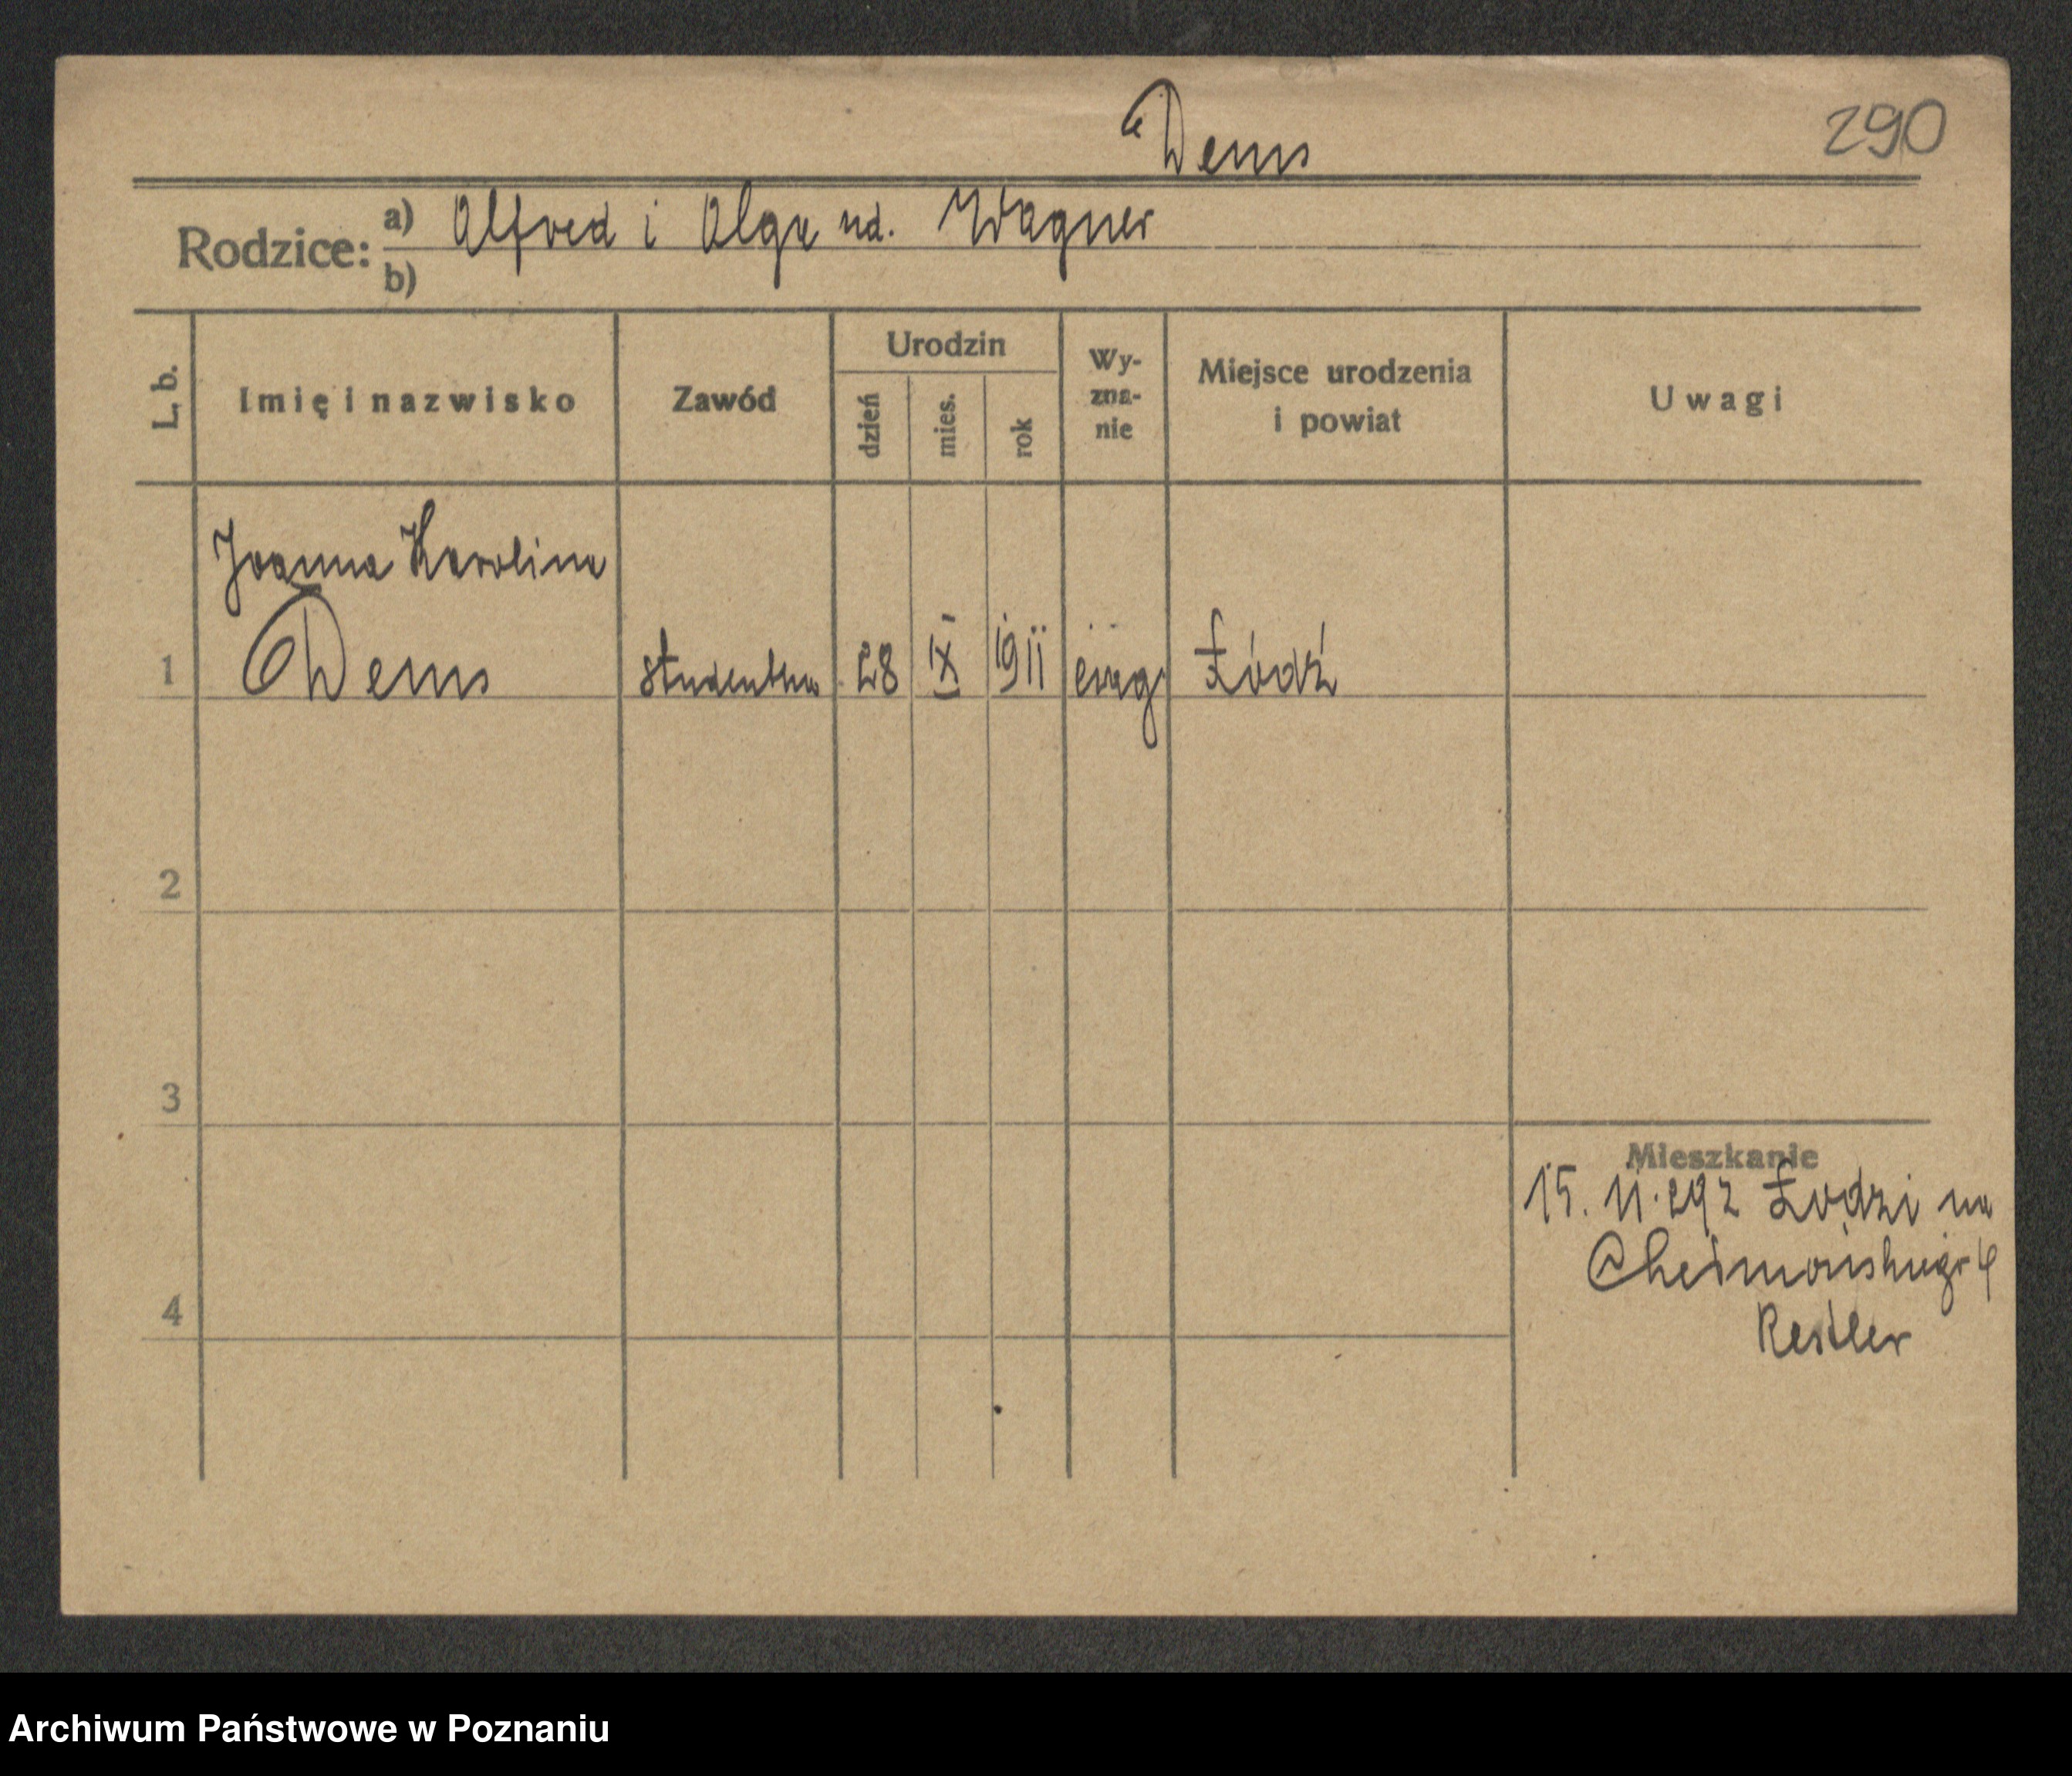 Dems
290
Rodzice: a) Alfred i Olga ud. Wagner
b)
L. b.
Imię i nazwisko
Zawód
Urodzin
dzień
mies.
rok
Wy-
zna-
nie
Miejsce urodzenia
i powiat
Uwagi
Joanna Karolina
1 Dems studentka 28 IX 1911 ewag Łódź
2
3
4
Mieszkanie
15. 11. 29 z Łodzi na
Chełmońskiego 4
Restler
Archiwum Państwowe w Poznaniu